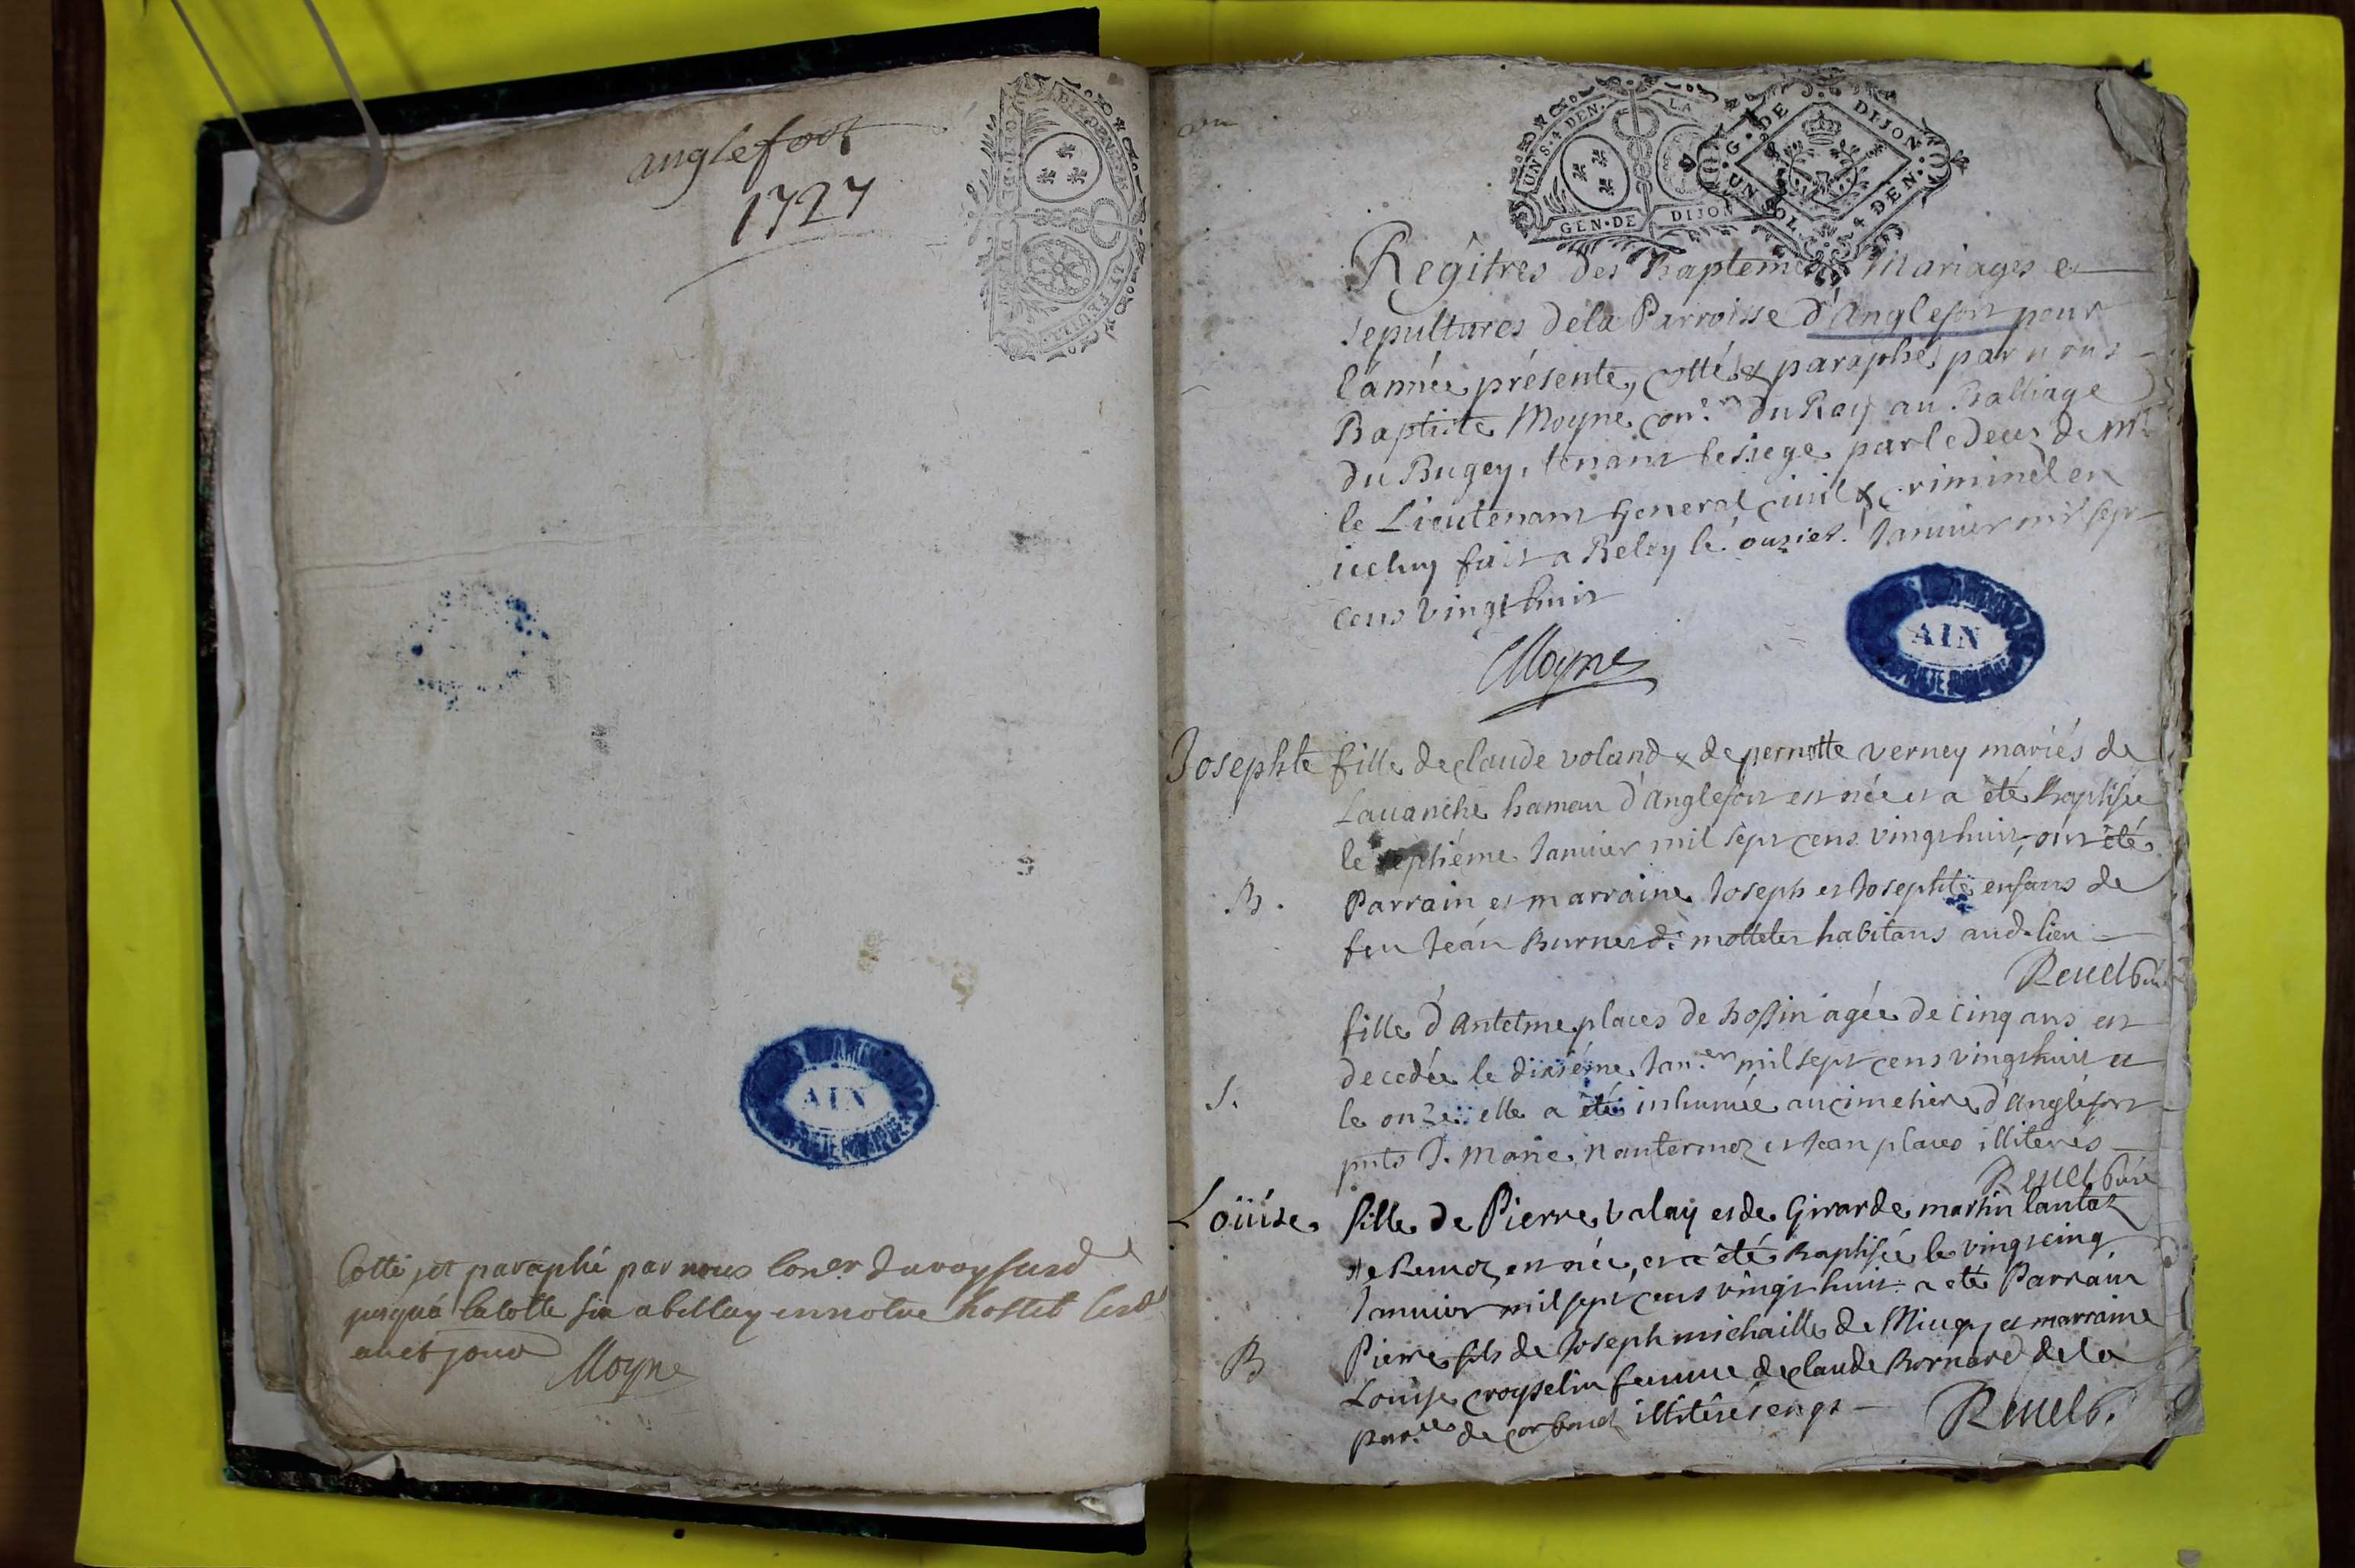 anglefort
1727
Cotté et paraphé par nous Coner du roy susd
jusqua la cotte six a belley en notre hostel les
an et jour
Moyne
AIN
UN S. 4 DEN. LA
GEN. DE DIJON
G. DE DIJON
UN SOL. 4 DEN.
Regîtres des Baptemes Mariages et
sepultures dela Parroisse d'Anglefort pour
l'année présente, cotté & paraphé par nous
Baptiste Moyne con.er du Roy au Balliage
du Bugey, tenant le siege par le Deces de Mr
le Lieutenant General civil & criminel en
iceluy fait a Beley le onzier. Janvier mil sept
cens vingt huit
Moyne
AIN
Josephte fille de claude voland & de pernette verney mariés de
Lavanche hameau d'Anglefort est née et a été Baptisée
le septiéme Janvier mil sept cens vingt huit, ont été
B. Parrain et marraine Joseph et Josephte enfans de
feu Jean Burnet d: mottetet habitans aud. lieu
Revel Curé
fille d'Antelme places de Bossin agée de cinq ans est
decedée le dixiéme Jan.er mil sept cens vingt huit et
S. le onze elle a été inhumée au cimetiere d'Anglefort
pnts J. Marie Nantermoz et Jean places illiterés
Revel Curé
Loüise fille de Pierre valay et de Girarde martin lantaz
de Remoz est née, et a été Baptisée le vingt cinq
Janvier mil sept cens vingt huit a eté Parrain
Pierre fils de Joseph michaille de Mieugy et marraine
B Louise croyselin femme de claude Bornard de la
parr.sse de Corbonod illitérés enqs
Revel C.